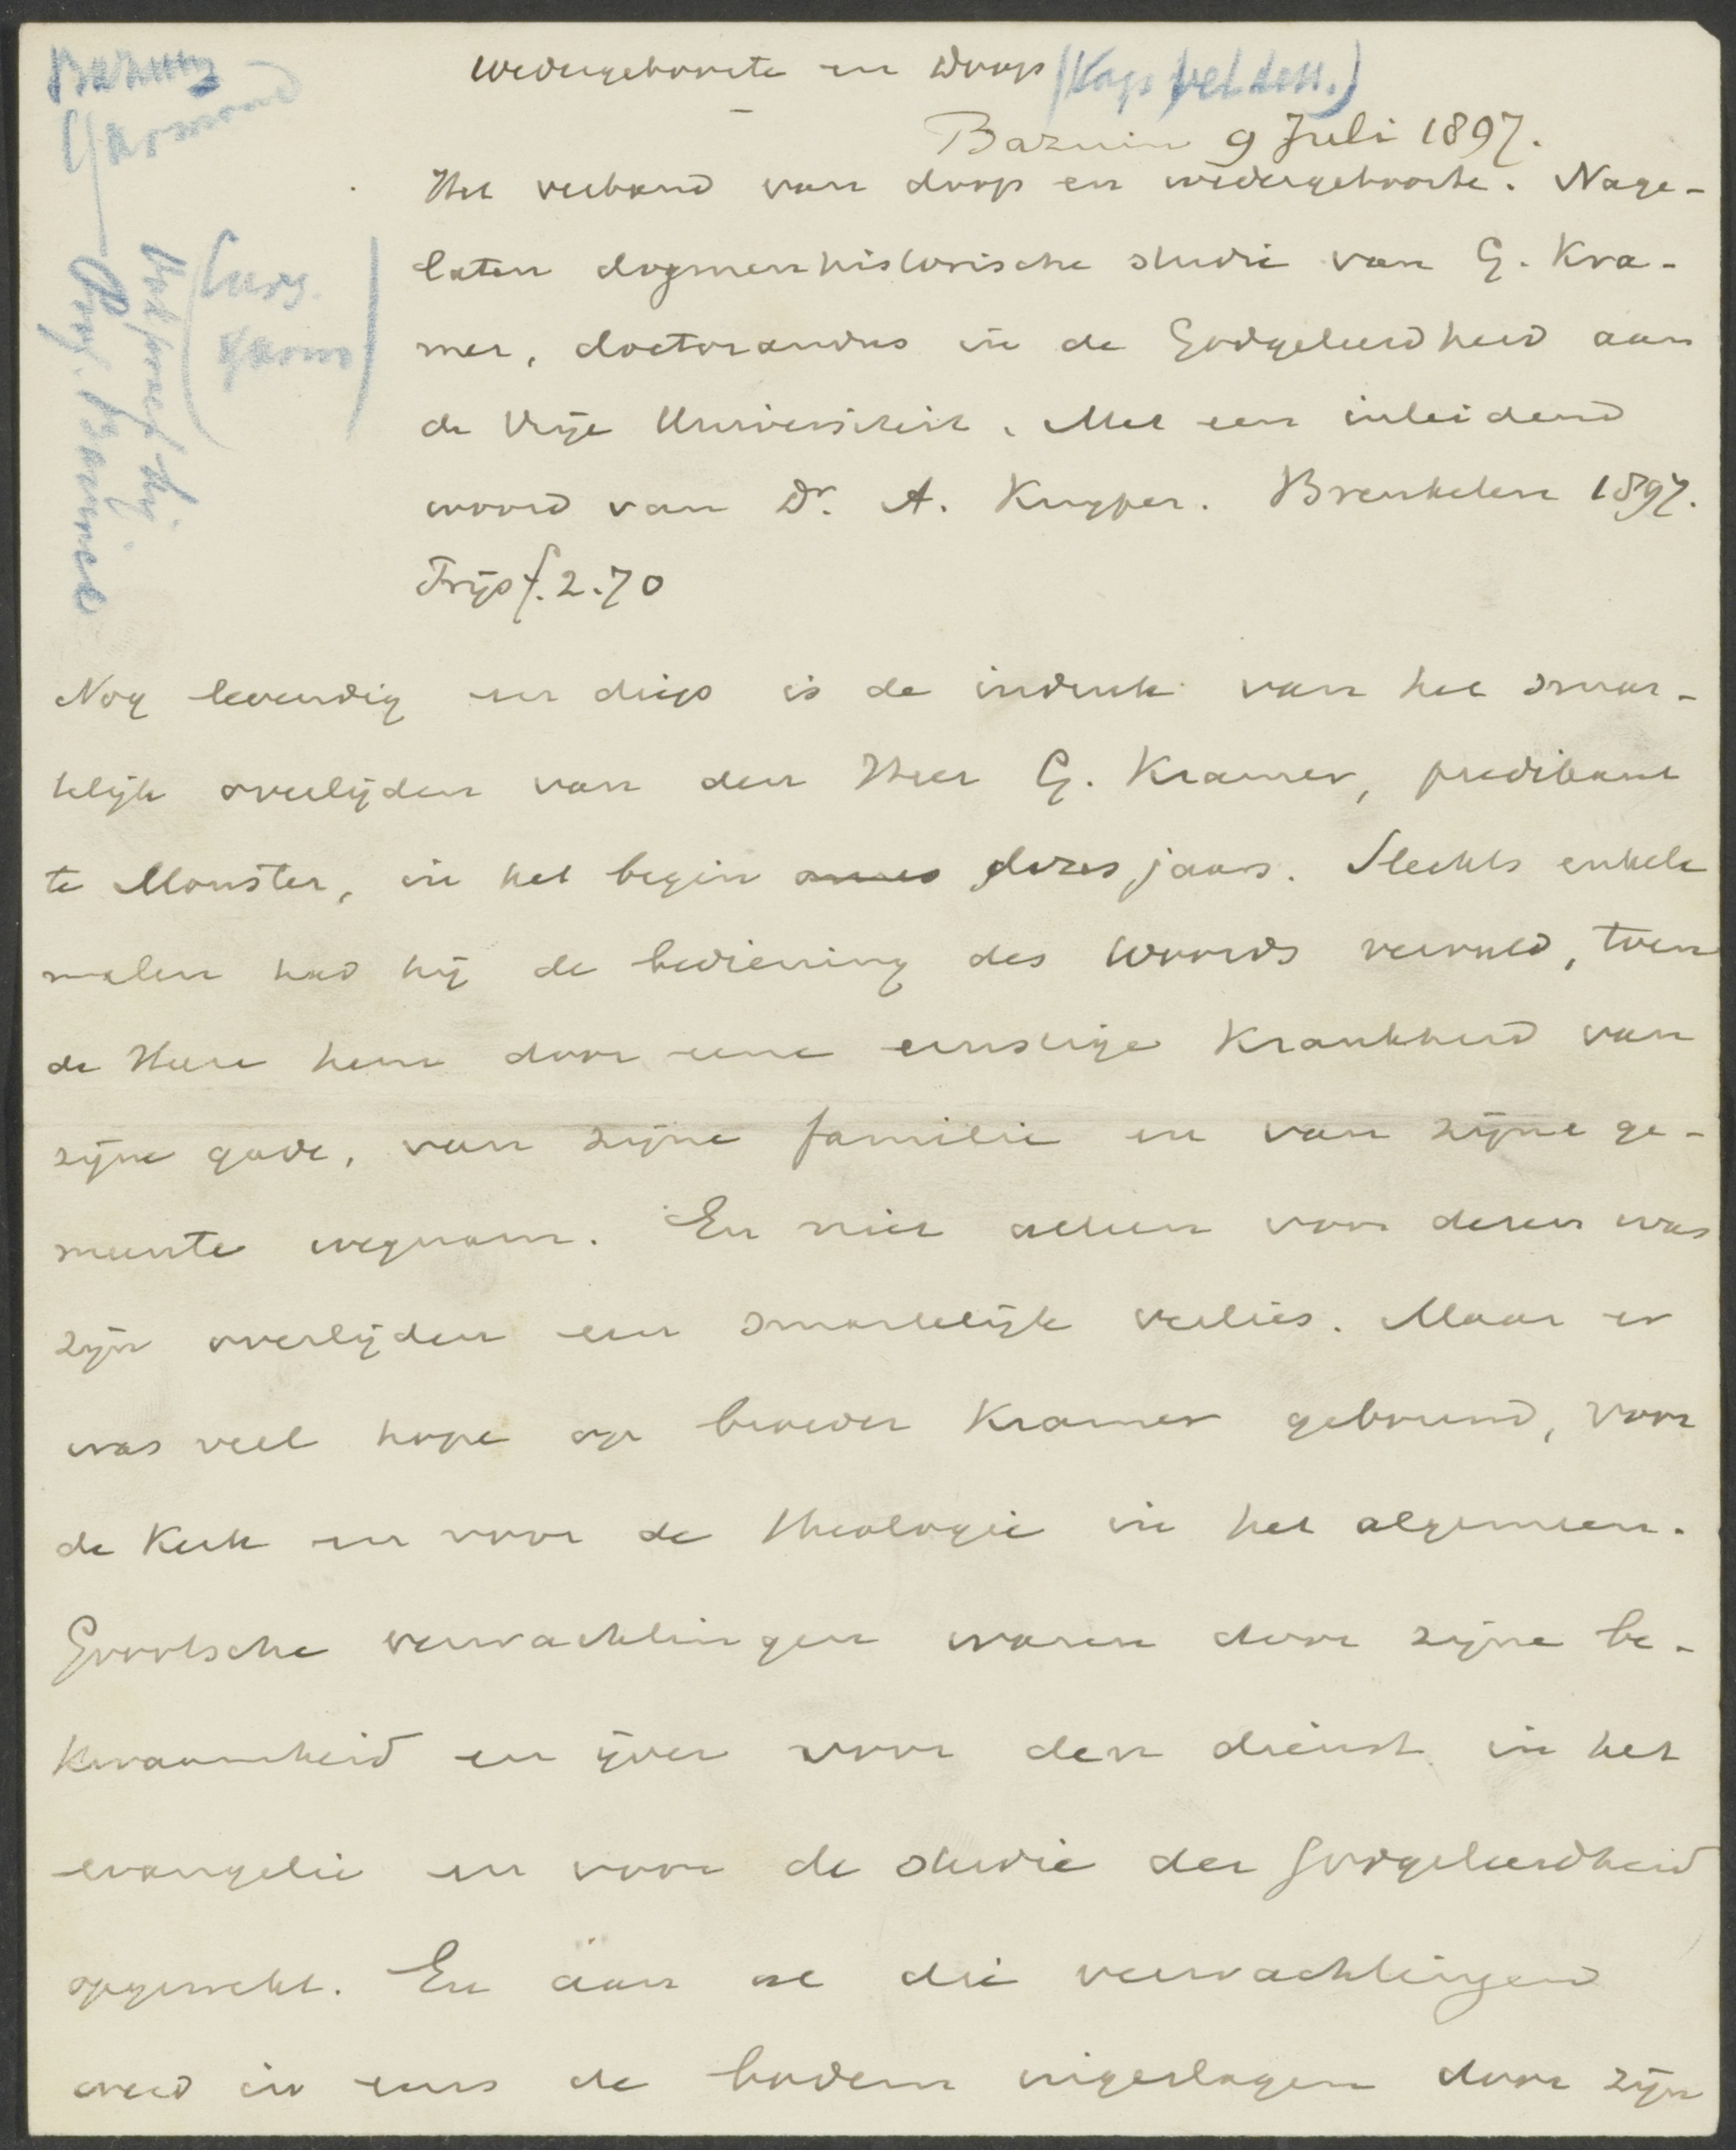 Bazuin
Garmond
Wedergeboorte en Doop (Kaps vet den.)
Bazuin 9 Juli 1897.
Het verband van doop en wedergeboorte. Nage-
laten dogmenhistorische studie van G. Kra-
mer, doctorandus in de Godgeleerdheid aan
de Vrije Universiteit. Met een inleidend
woord van Dr. A. Kuyper. Breukelen 1897.
Prijs f. 2.70
(Curs.
garm)
Prof. Bavinck
Nog levendig en diep is de indruk van het smar-
telijk overlijden van den Heer G. Kramer, predikant
te Monster, in het begin dezes jaars. Slechts enkele
malen had hij de bediening des Woords vervuld, toen
de Heere hem door eene ernstige krankheid van
zijne gade, van zijne familie en van zijne ge-
meente wegnam. En niet alleen voor dezen was
zijn overlijden een smartelijk verlies. Maar er
was veel hope op broeder Kramer gebouwd, voor
de Kerk en voor de theologie in het algemeen.
Grootsche verwachtingen waren door zijne be-
kwaamheid en ijver voor den dienst in het
evangelie en voor de studie der Godgeleerdheid
opgewekt. En aan al die verwachtingen
werd in eens de bodem ingeslagen door zijn